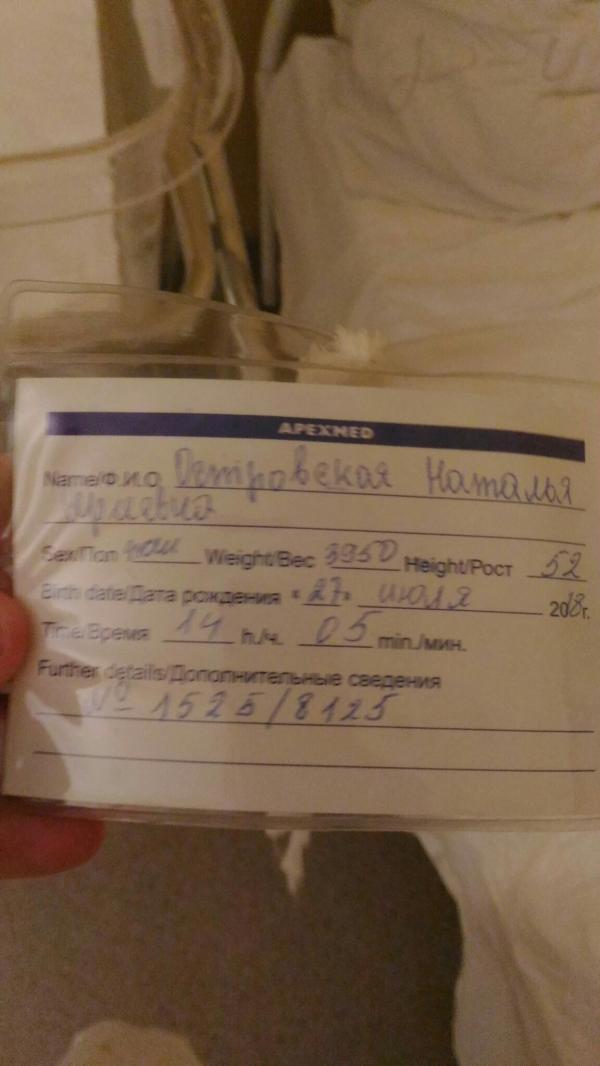 APEXMED
Name/Ф.И.О Островская Наталья
Sex/Пол Weight/Вес 3950 Height/Рост 52
Birth date/Дата рождения «27» июля 2018г.
Time/Время 14 h./ч. 05 min./мин.
Further details/Дополнительные сведения
№ 1525/8125